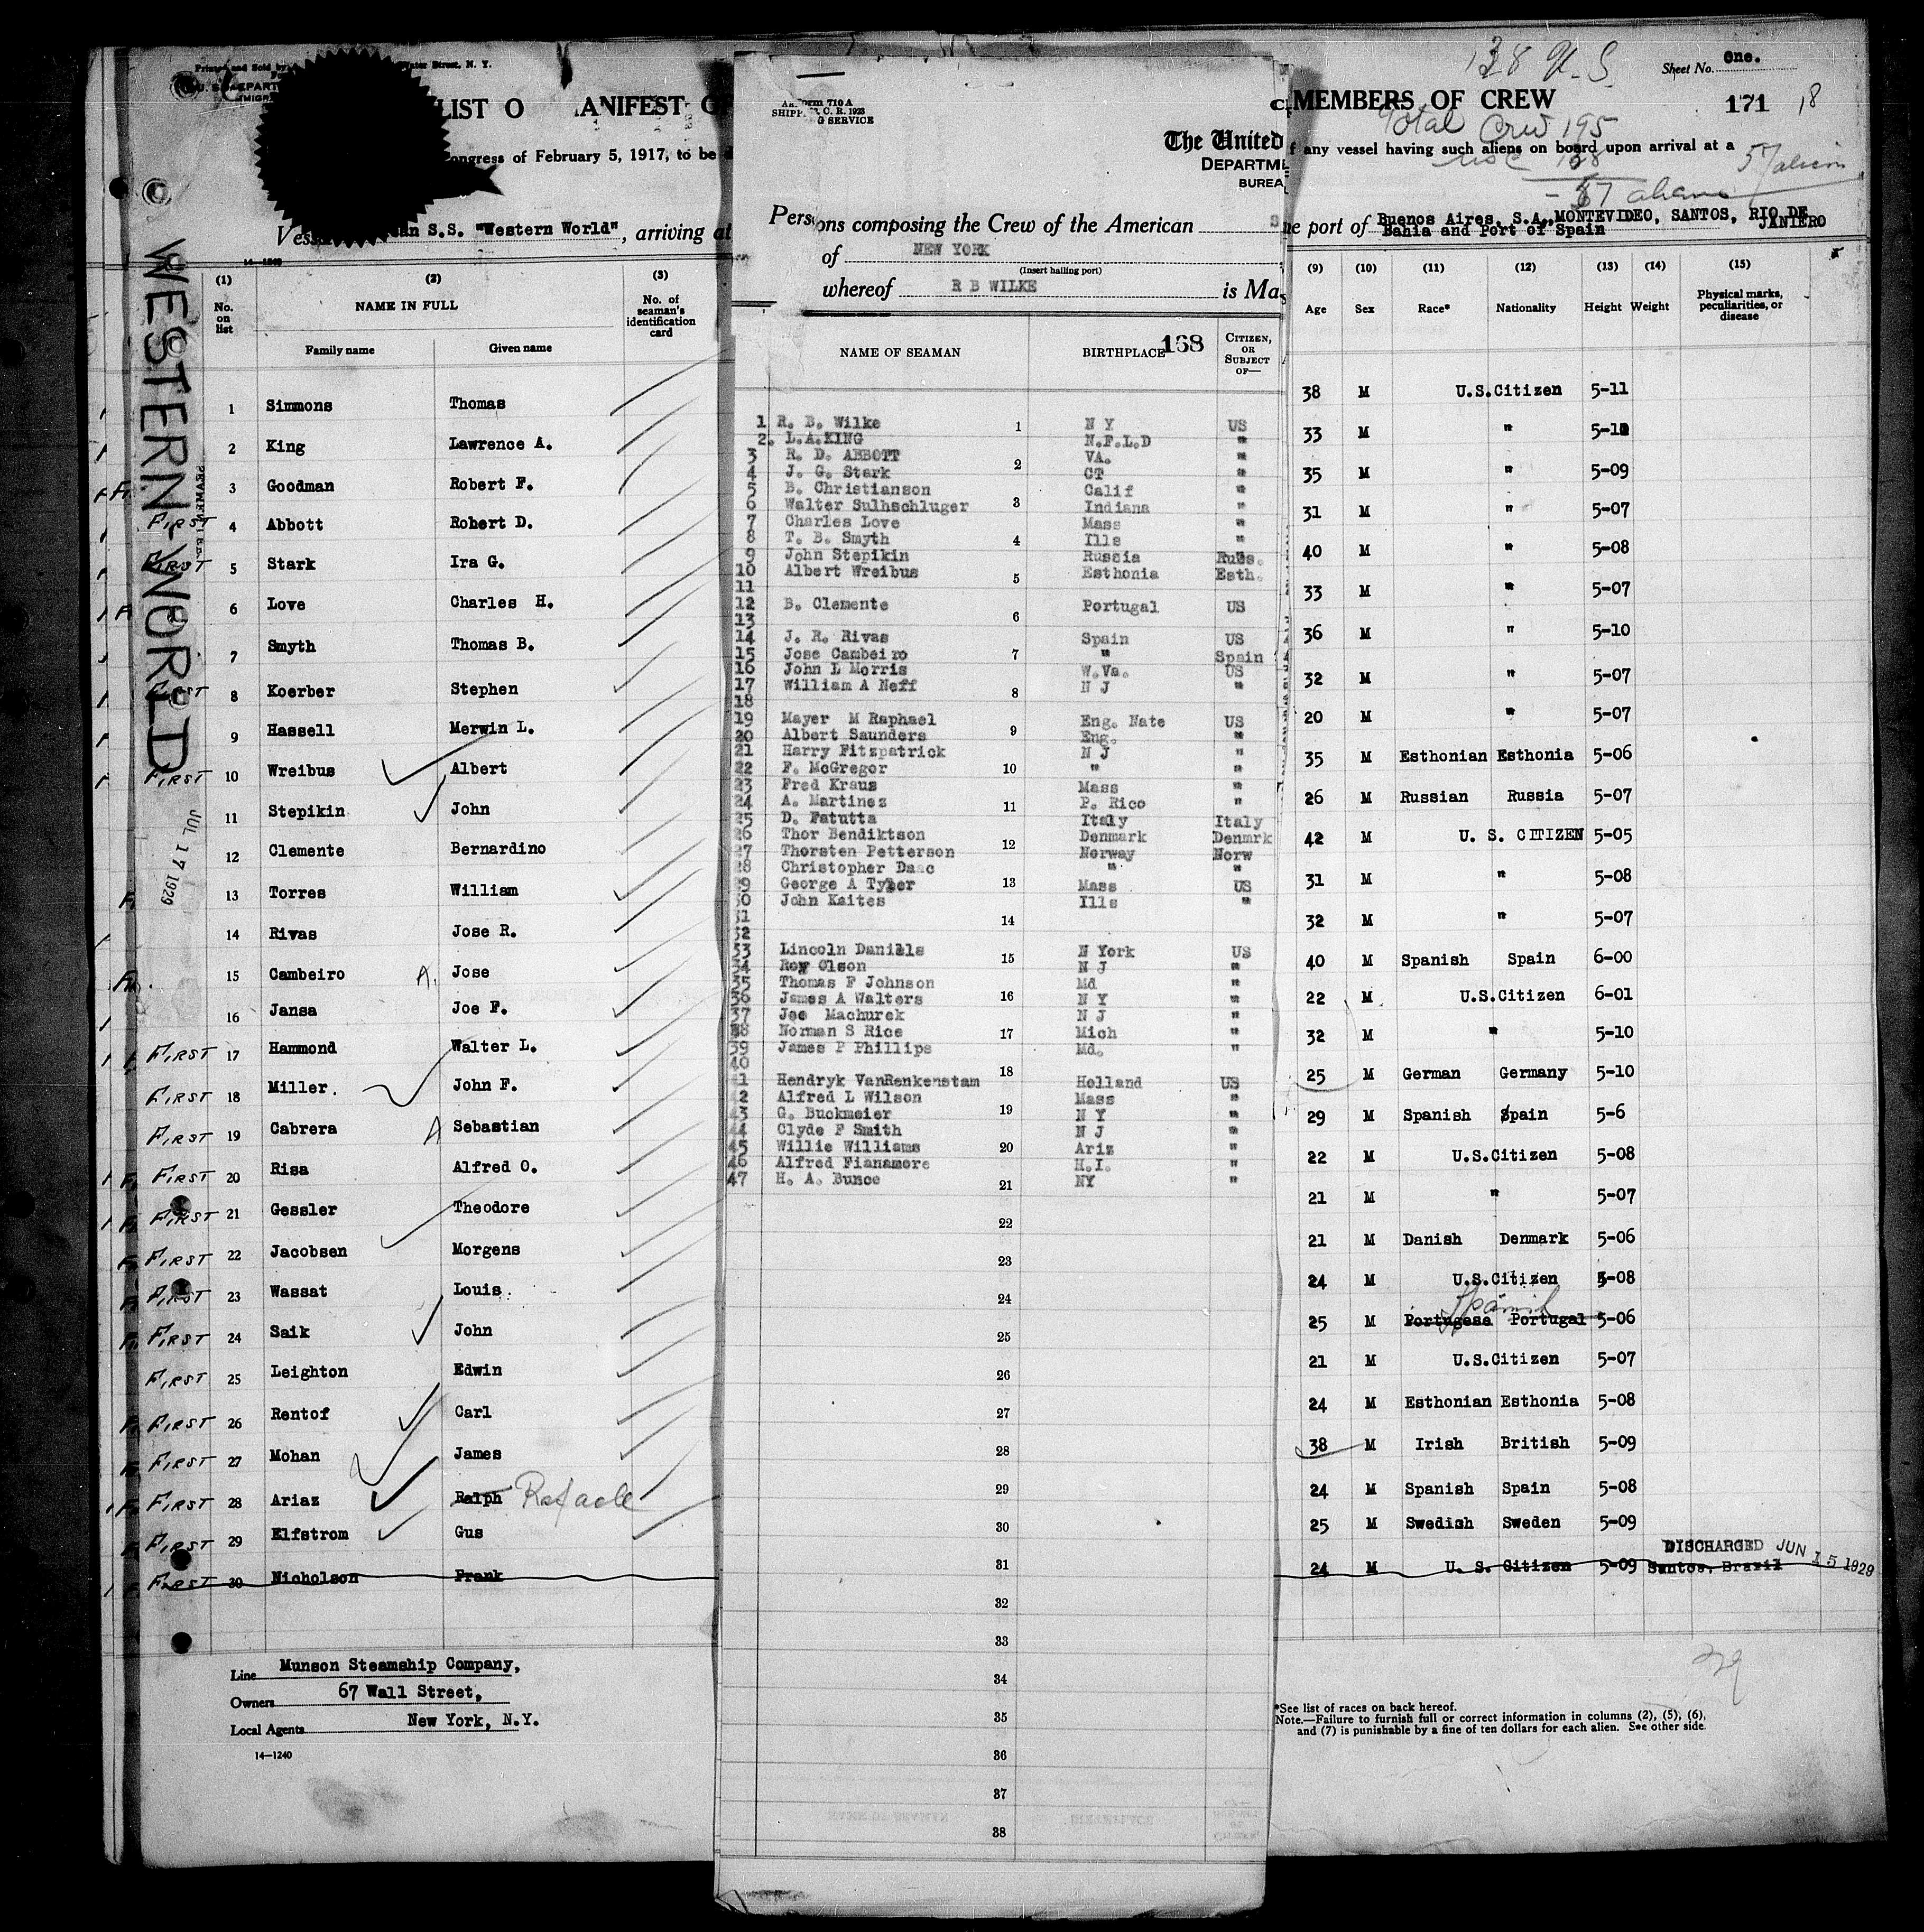 Printed and Sold by
Water Street, N. Y.
LIST O
ANIFEST
ongress of February 5, 1917, to be
S.S. "Western World", arriving at
WESTERN WORLD
JUL 17 1929
(1) (2) (3)
No. on list
NAME IN FULL
No. of seaman's identification card
Family name Given name
1 Simmons Thomas
2 King Lawrence A.
3 Goodman Robert F.
FIRST 4 Abbott Robert D.
FIRST 5 Stark Ira G.
6 Love Charles H.
7 Smyth Thomas B.
FIRST 8 Koerber Stephen
9 Hassell Merwin L.
FIRST 10 Wreibus Albert
11 Stepikin John
12 Clemente Bernardino
13 Torres William
14 Rivas Jose R.
15 Cambeiro A. Jose
16 Jansa Joe F.
FIRST 17 Hammond Walter L.
FIRST 18 Miller. John F.
FIRST 19 Cabrera A Sebastian
FIRST 20 Risa Alfred O.
FIRST 21 Gessler Theodore
FIRST 22 Jacobsen Morgens
FIRST 23 Wassat Louis.
FIRST 24 Saik John
FIRST 25 Leighton Edwin
FIRST 26 Rentof Carl
FIRST 27 Mohan James
FIRST 28 Ariaz Ralph Rafaele
FIRST 29 Elfstrom Gus
FIRST 30 Nicholson Frank
Line Munson Steamship Company,
Owners 67 Wall Street,
Local Agents New York, N.Y.
14—1240
Form 710 A
SHIPP
C. R. 1923
G SERVICE
The United
DEPARTME
BUREA
Persons composing the Crew of the American S
of NEW YORK
(Insert hailing port)
whereof R B WILKE is Mas
NAME OF SEAMAN
BIRTHPLACE 168
CITIZEN, OR SUBJECT OF—
1 R. B. Wilke N Y US
2. L.A.KING N.F.L.D "
3 R. D. ABBOTT VA. "
4 J. G. Stark CT "
5 B. Christianson Calif "
6 Walter Sulhschluger Indiana "
7 Charles Love Mass "
8 T. B. Smyth Ills "
9 John Stepikin Russia Russ.
10 Albert Wreibus Esthonia Esth.
11
12 B. Clemente Portugal US
13
14 J. R. Rivas Spain US
15 Jose Cambeiro " Spain
16 John L Morris W.Va. US
17 William A Neff N J "
18
19 Mayer M Raphael Eng. Nate US
20 Albert Saunders Eng. "
21 Harry Fitzpatrick N J "
22 F. McGregor " "
23 Fred Kraus Mass "
24 A. Martinez P. Rico "
25 D. Fatutta Italy Italy
26 Thor Bendiktson Denmark Denmrk
27 Thorsten Petterson Norway Norw
28 Christopher Daac " "
29 George A Tyler Mass US
30 John Kaites Ills "
31
32
33 Lincoln Daniels N York US
34 Roy Olson N J "
35 Thomas F Johnson Md "
36 James A Walters N Y "
37 Joe Machurek N J "
38 Norman S Rice Mich "
39 James P Phillips Md. "
40
41 Hendryk VanRenkenstam Holland US
42 Alfred L Wilson Mass "
43 G. Buckmeier N Y "
44 Clyde F Smith N J "
45 Willie Williams Ariz "
46 Alfred Fianamore H.I. "
47 H. A. Bunce NY "
1
2
3
4
5
6
7
8
9
10
11
12
13
14
15
16
17
18
19
20
21
22
23
24
25
26
27
28
29
30
31
32
33
34
35
36
37
38
138 U.S
Sheet No. One.
MEMBERS OF CREW 171 18
Total Crew 195
f any vessel having such aliens on board upon arrival at a
57 aliens
57 aliens
e port of Buenos Aires, S.A., MONTEVIDEO, SANTOS, RIO DE JANIERO
Bahia and Port of Spain
(9) (10) (11) (12) (13) (14) (15)
Age Sex Race* Nationality Height Weight Physical marks, peculiarities, or disease
38 M U.S.Citizen 5-11
33 M " 5-10
35 M " 5-09
31 M " 5-07
40 M " 5-08
33 M " 5-07
36 M " 5-10
32 M " 5-07
20 M " 5-07
35 M Esthonian Esthonia 5-06
26 M Russian Russia 5-07
42 M U. S. CITIZEN 5-05
31 M " 5-08
32 M " 5-07
40 M Spanish Spain 6-00
22 M U.S.Citizen 6-01
32 M " 5-10
25 M German Germany 5-10
29 M Spanish Spain 5-6
22 M U.S.Citizen 5-08
21 M " 5-07
21 M Danish Denmark 5-06
24 M U.S.Citizen 5-08
Spanish
25 M Portugese Portugal 5-06
21 M U.S.Citizen 5-07
24 M Esthonian Esthonia 5-08
38 M Irish British 5-09
24 M Spanish Spain 5-08
25 M Swedish Sweden 5-09
DISCHARGED JUN 15 1929
24 M U. S. Citizen 5-09 Santos, Brazil
29
*See list of races on back hereof.
Note.—Failure to furnish full or correct information in columns (2), (5), (6),
and (7) is punishable by a fine of ten dollars for each alien. See other side.